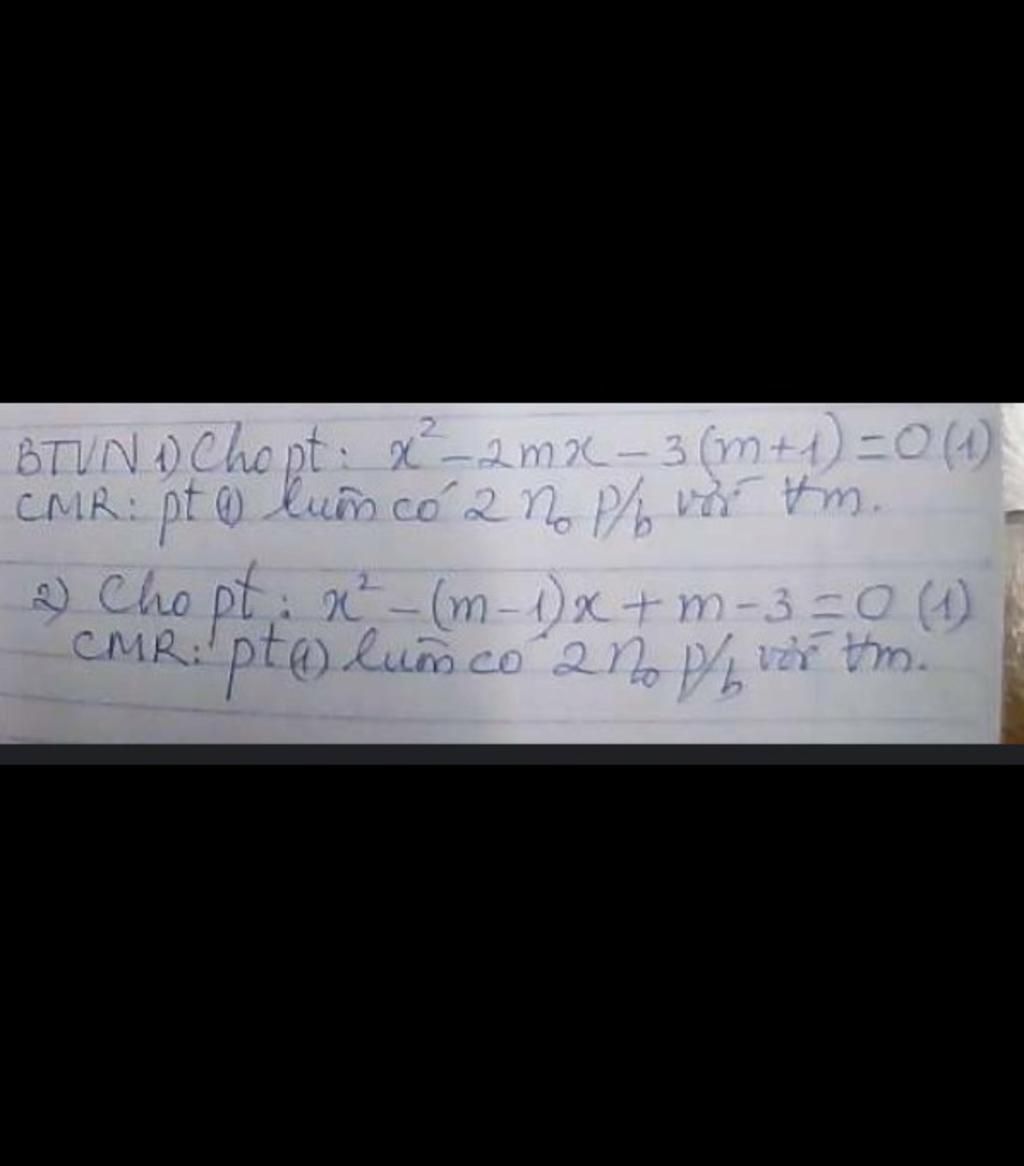 BTVN 1) Cho pt: x² - 2mx - 3(m+1) = 0 (1)
CMR: pt (1) luôn có 2 n₀ p/b với ∀m.
2) Cho pt: x² - (m-1)x + m - 3 = 0 (1)
CMR: pt (1) luôn có 2 n₀ p/b với ∀m.